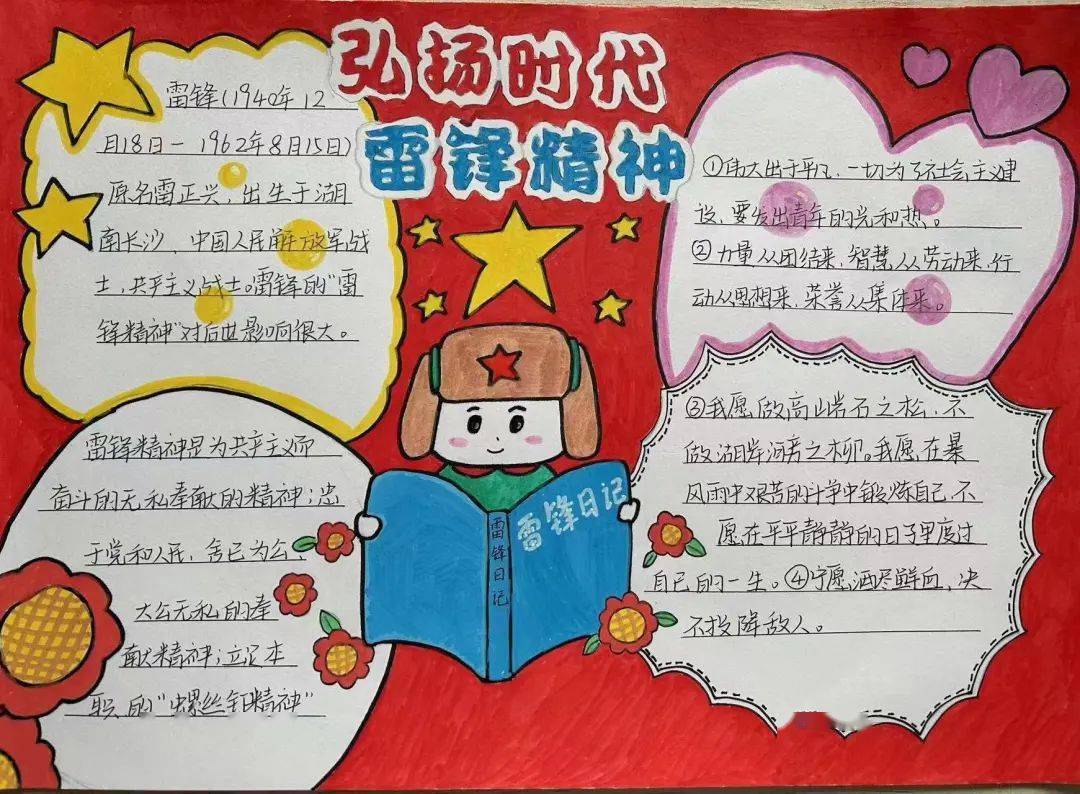 弘扬时代
雷锋精神
雷锋(1940年12
月18日一1962年8月15日)
原名雷正兴，出生于湖
南长沙、中国人民解放军战
士，共产主义战士。雷锋的"雷
锋精神"对后世影响很大。
雷锋精神是为共产主义而
奋斗的无私奉献的精神；忠
于党和人民，舍己为公、
大公无私的奉
献精神；立足本
职的"螺丝钉精神"
雷锋日记
雷锋日记
①伟大出于平凡，一切为了社会主义建
设，要发出青年的光和热。
②力量从团结来，智慧从劳动来，行
动从思想来，荣誉从集体来。
③我愿做高山岩石之松，不
做湖岸河旁之柳。我愿在暴
风雨中艰苦的斗争中锻炼自己，不
愿在平平静静的日子里度过
自己的一生。④宁愿洒尽鲜血，决
不投降敌人。